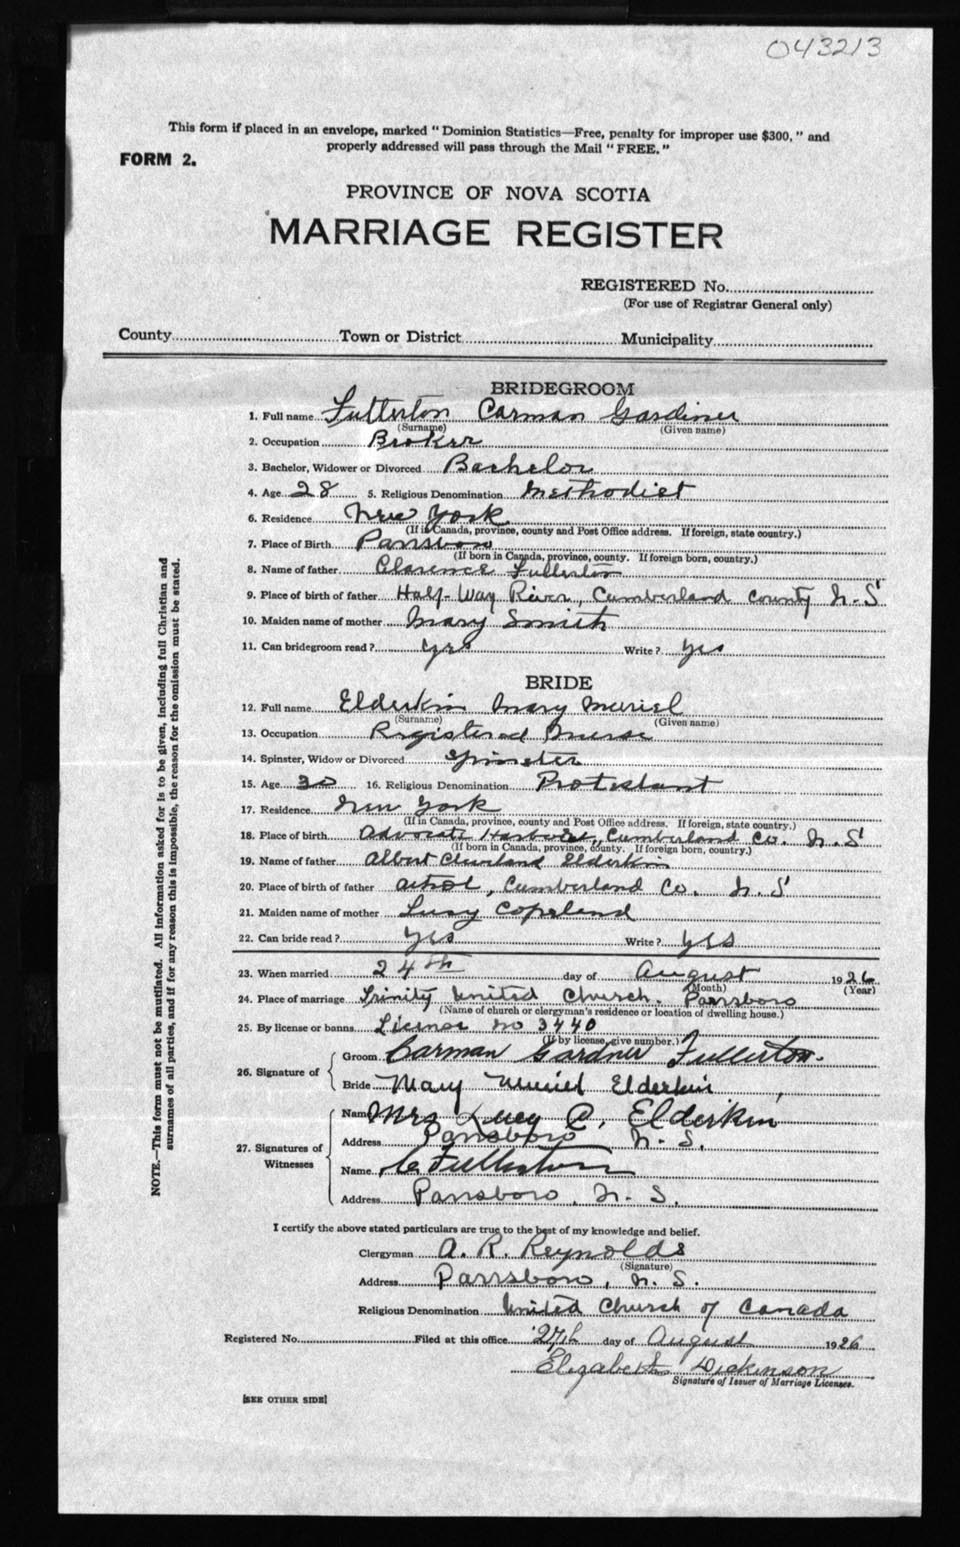 043213
This form if placed in an envelope, marked " Dominion Statistics—Free, penalty for improper use $300, " and
properly addressed will pass through the Mail " FREE. "
FORM 2.
PROVINCE OF NOVA SCOTIA
MARRIAGE REGISTER
REGISTERED No.
(For use of Registrar General only)
County Town or District Municipality
BRIDEGROOM
1. Full name Fullerton Carman Gardiner
(Surname) (Given name)
2. Occupation Broker
3. Bachelor, Widower or Divorced Bachelor
4. Age 28 5. Religious Denomination Methodist
6. Residence New York
(If in Canada, province, county and Post Office address. If foreign, state country.)
7. Place of Birth Parrsboro
(If born in Canada, province, county. If foreign born, country.)
8. Name of father Clarence Fullerton
9. Place of birth of father Half-Way River, Cumberland County N.S
10. Maiden name of mother Mary Smith
11. Can bridegroom read? yes Write? yes
BRIDE
12. Full name Elderkin Mary Muriel
(Surname) (Given name)
13. Occupation Registered Nurse
14. Spinster, Widow or Divorced Spinster
15. Age 30 16. Religious Denomination Protestant
17. Residence New York
(If in Canada, province, county and Post Office address. If foreign, state country.)
18. Place of birth Advocate Harbour, Cumberland Co. N.S
(If born in Canada, province, county. If foreign born, country.)
19. Name of father Albert Cleveland Elderkin
20. Place of birth of father Cumberland Co. N.S
21. Maiden name of mother Lucy Copeland
22. Can bride read? yes Write? yes
23. When married 24th day of August 1926
(Month) (Year)
24. Place of marriage Trinity United Church. Parrsboro
(Name of church or clergyman's residence or location of dwelling house.)
25. By license or banns License No 3440
(If by license, give number.)
26. Signature of
Groom Carman Gardner Fullerton.
Bride Mary Muriel Elderkin
27. Signatures of Witnesses
Name Mrs Lucy C. Elderkin
Address Parrsboro N.S.
Name C Fullerton
Address Parrsboro, N.S.
I certify the above stated particulars are true to the best of my knowledge and belief.
Clergyman A. R. Reynolds
(Signature)
Address Parrsboro, N.S.
Religious Denomination United Church of Canada
Registered No. Filed at this office 27th day of August 1926
Elizabeth Dickinson
Signature of Issuer of Marriage Licenses.
[SEE OTHER SIDE]
NOTE.—This form must not be mutilated. All information asked for is to be given, including full Christian and
surnames of all parties, and if for any reason this is impossible, the reason for the omission must be stated.